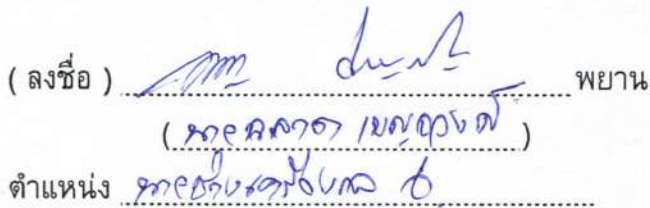 ( ลงชื่อ ) พยาน
( นายฉลาด เบญจวงศ์ )
ตำแหน่ง นายช่างเครื่องกล 6